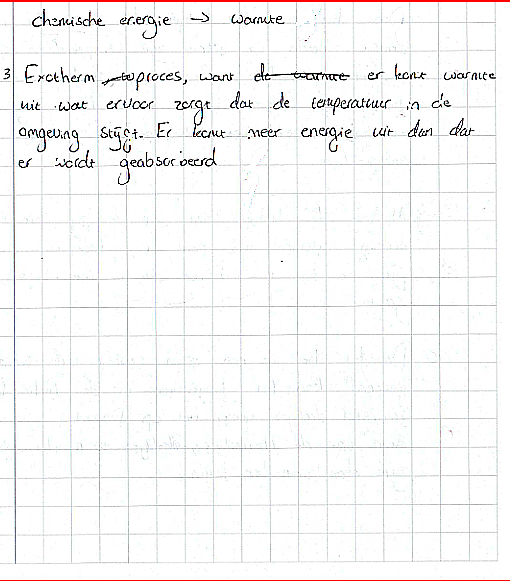 chemische energie → warmte
3 Exotherm proces, want de warmte er komt warmte
uit wat ervoor zorgt dat de temperatuur in de
omgeving stijgt. Er komt meer energie uit dan dat
er wordt geabsorbeerd